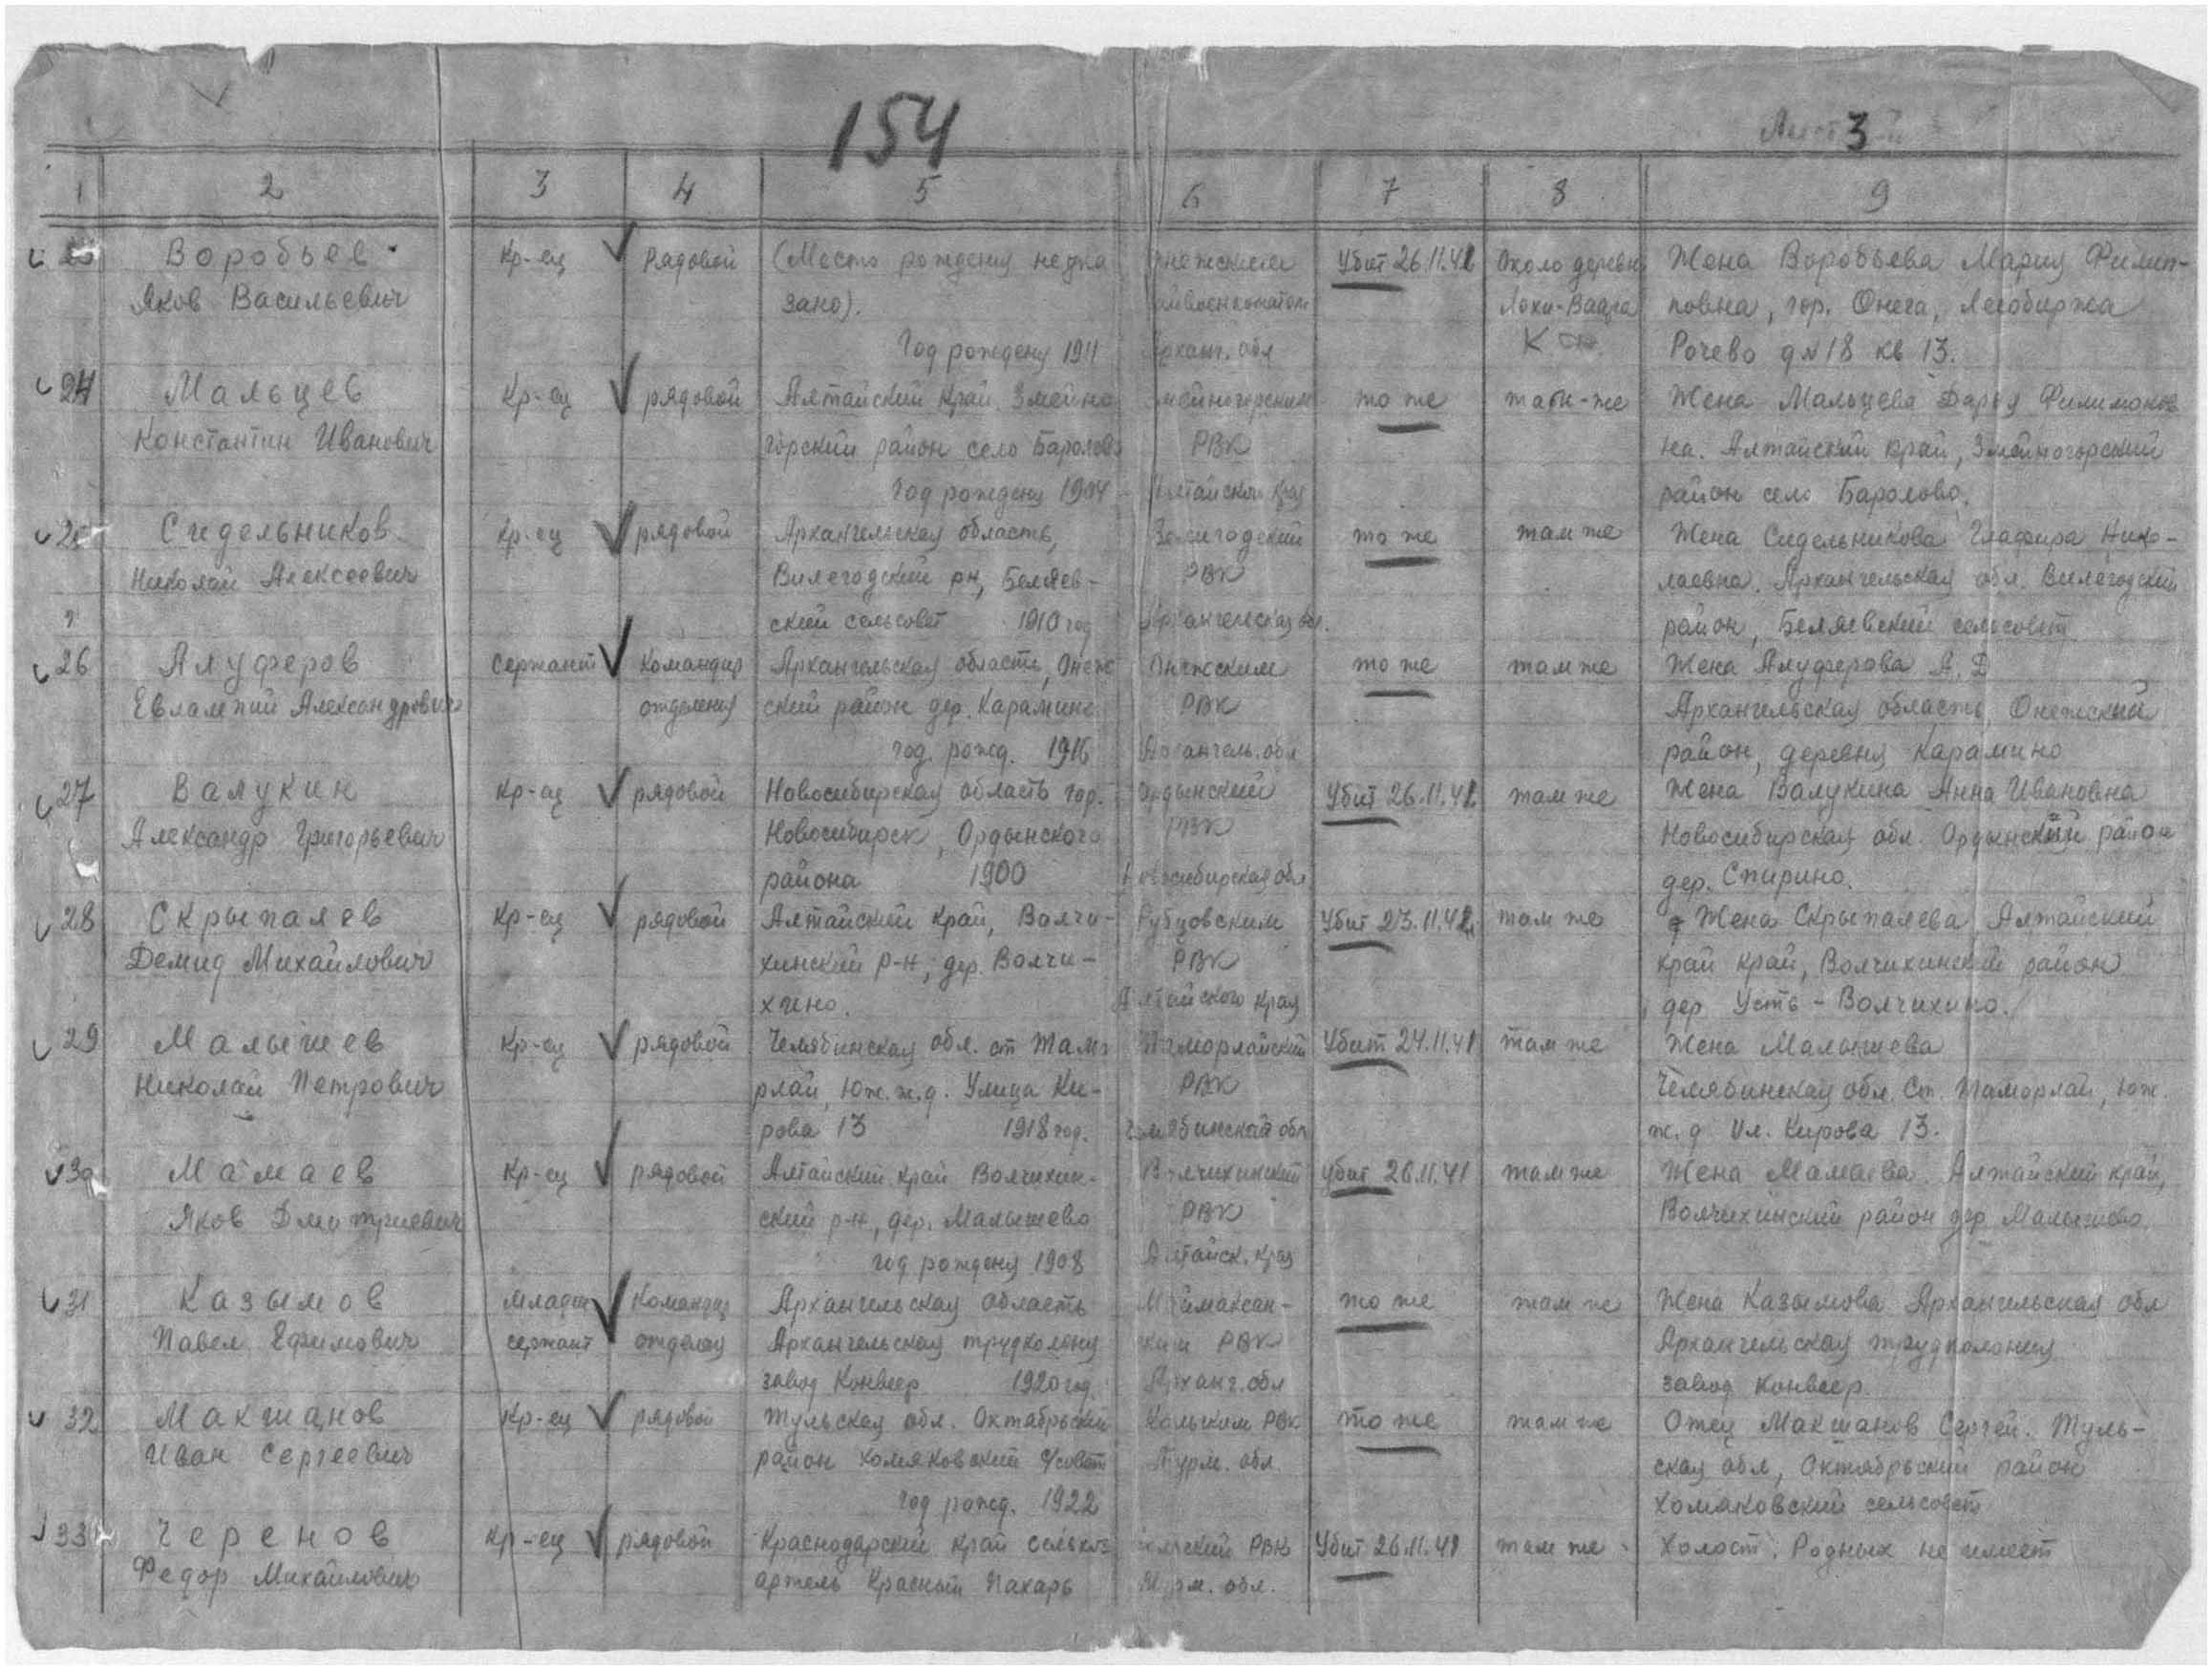 154
Лист 3
1 2 3 4 5 6 7 8 9
Воробьев Кр-ец Рядовой (Место рождения неука Онежским Убит 26.11.41 Около деревн Жена Воробьева Мария Филип-
Яков Васильевич зано). райвоенкоматом Лохи-Ваара повна, гор. Онега, Лесобиржа
Год рождения 1911 Арханг. обл Рочево д N 18 кв 13.
24 Мальцев Кр-ец рядовой Алтайский край. Змейно Змейногорским то же там-же Жена Мальцева Дарья Филимонов
Константин Иванович горский район село Баролово РВК на. Алтайский край, Змейногорский
Год рождения 1904 Алтайский край район село Баролово.
25 Сидельников Кр-ец рядовой Архангельская область, то же там же Жена Сидельникова Глафира Нико-
Николай Алексеевич Вилегодский рн, Беляев- РВК лаевна. Архангельская обл. Вилегодский
ский сельсовет 1910 год Архангельская обл. район, Беляевский сельсовет
26 Алуферов Сержант Командир Архангельская область, Онеж Онежским то же там же Жена Алуферова А. Д
Евлампий Александрович отделения ский район дер. Карамино РВК Архангельская область, Онежский
год. рожд. 1916 Архангель. обл район, деревня Карамино
27 Валукин Кр-ец рядовой Новосибирская область гор. Ордынский Убит 26.11.41 там же Жена Валукина Анна Ивановна
Александр Григорьевич Новосибирск, Ордынского РВК Новосибирская обл. Ордынский район
района 1900 Новосибирская обл дер. Спирино.
28 Скрыпалев Кр-ец рядовой Алтайский край, Волчи- Рубцовским Убит 23.11.41 там же Жена Скрыпалева Алтайский
Демид Михайлович хинский р-н, дер. Волчи- РВК край край, Волчихинский район
хино. Алтайского края дер Усть-Волчихино.
29 Малышев Кр-ец рядовой Челябинская обл. ст Тамо Таморлайский Убит 24.11.41 там же Жена Малышева
Николай Петрович рлай, Юж. ж.д. Улица Ки- РВК Челябинская обл. Ст. Таморлай, Юж.
рова 13 1918 год. Челябинской обл ж.д Ул. Кирова 13.
30 Мамаев Кр-ец рядовой Алтайский край Волчихин- Волчихинский Убит 26.11.41 там же Жена Мамаева. Алтайский край,
Яков Дмитриевич ский р-н, дер. Малышево РВК Волчихинский район дер Малышево.
год рождения 1908 Алтайск. края
31 Казымов Младш Командир Архангельская область Маймаксан- то же там же Жена Казымова Архангельская обл
Павел Ефимович сержант отделен Архангельская трудколония ским РВК Архангельская трудколония
завод Конвеер 1920 год. Арханг. обл завод Конвеер.
32 Макшанов Кр-ец рядовой Тульская обл. Октябрьский Кольским РВК то же там же Отец Макшанов Сергей. Туль-
Иван Сергеевич район Хомяковский с/совет Мурм. обл. ская обл, Октябрьский район
Год рожд. 1922 Хомяковский сельсовет
33 Черенов Кр-ец рядовой Краснодарский край сельхоз Кольский РВК Убит 26.11.41 там же Холост. Родных не имеет
Федор Михайлович артель Красный Пахарь Мурм. обл.